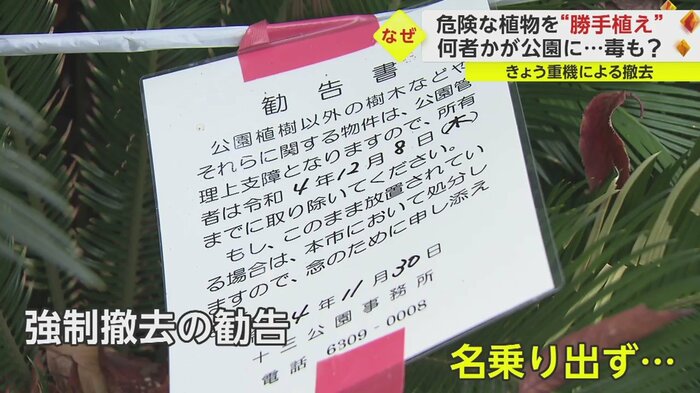 なぜ
危険な植物を“勝手植え”
何者かが公園に…毒も？
きょう重機による撤去
勧告書
公園植樹以外の樹木などや
それらに関する物件は、公園管
理上支障となりますので、所有
者は令和4年12月8日(木)
までに取り除いてください。
もし、このまま放置されてい
る場合は、本市において処分し
ますので、念のために申し添え
ます。
4年11月30日
十三公園事務所
電話 6309-0008
強制撤去の勧告
名乗り出ず…